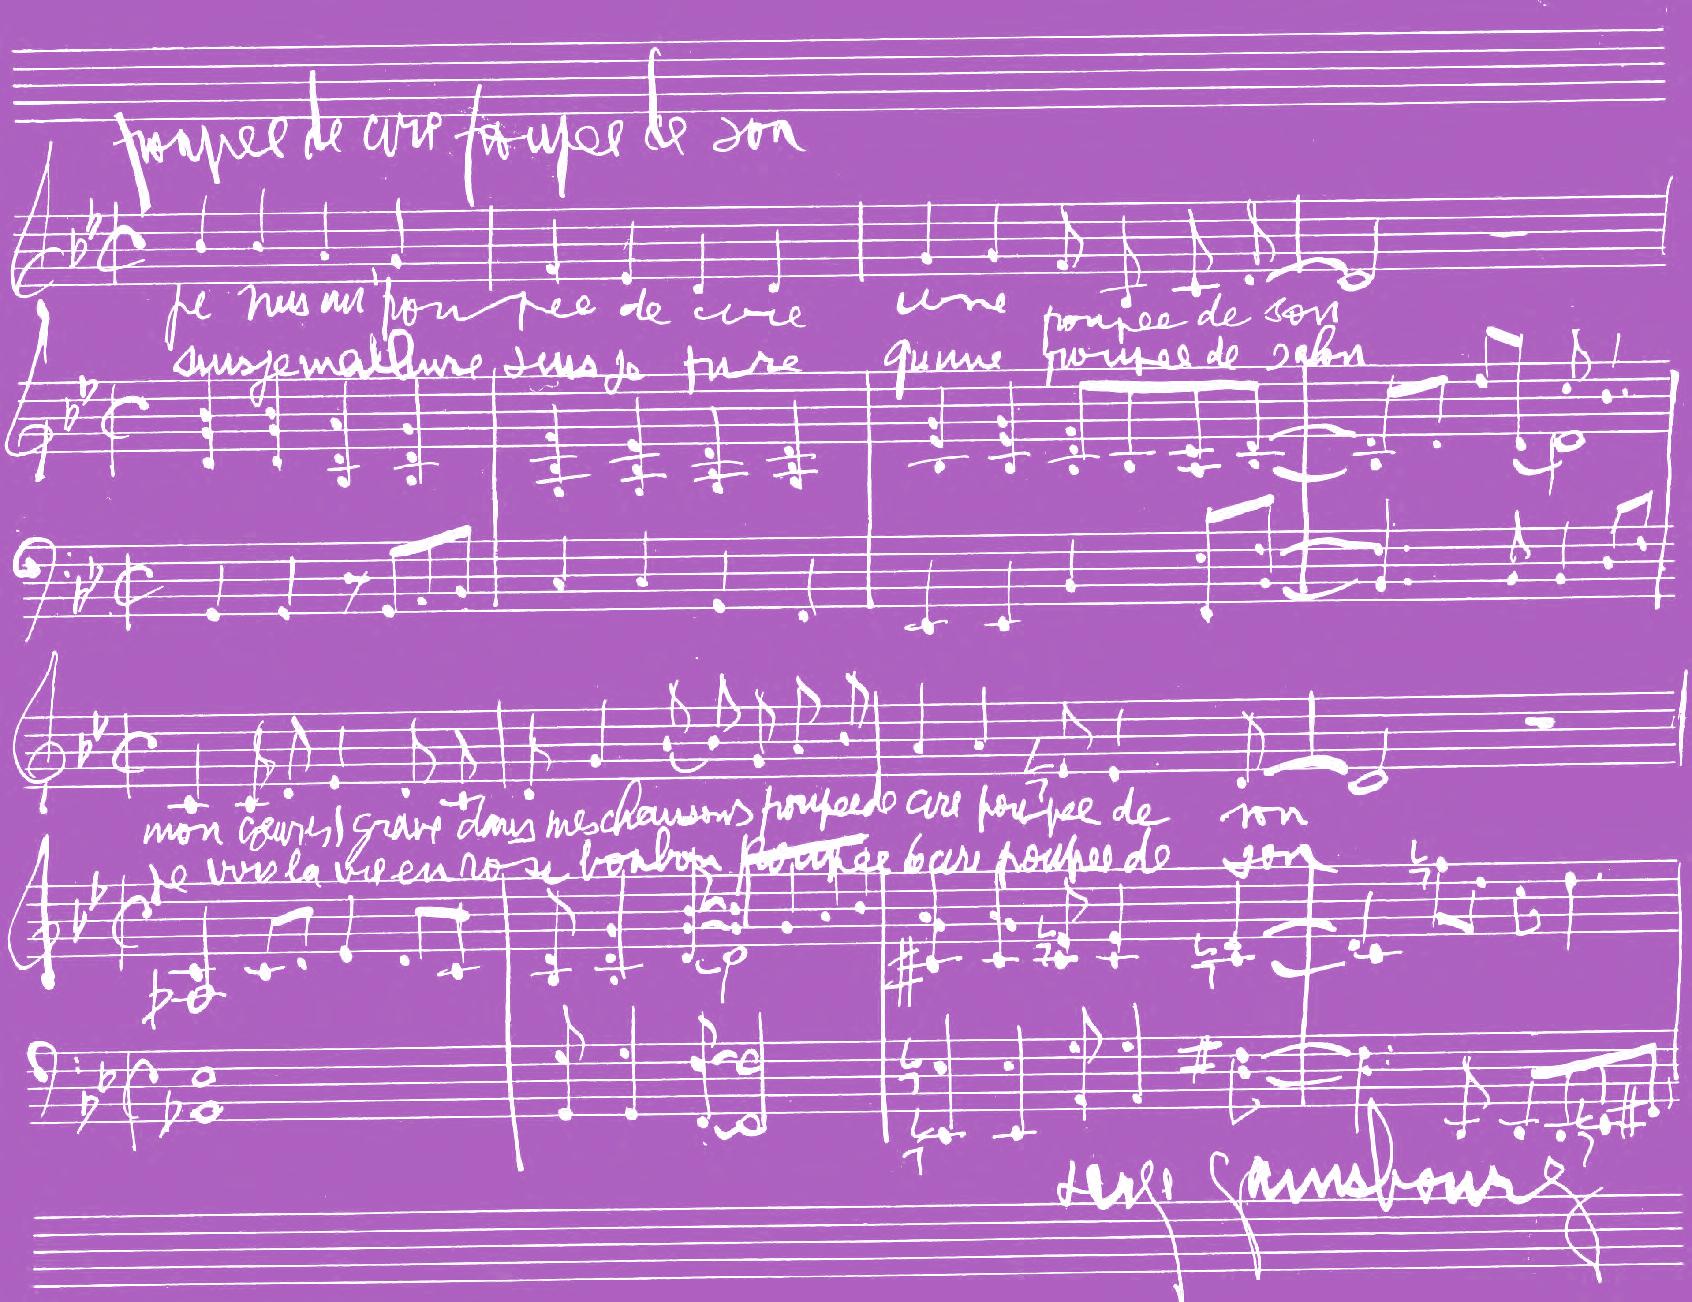 poupee de cire poupee de son
je suis un' poupee de cire une poupee de son
suis je meilleure suis je pire qu une poupee de salon
mon cœur est gravé dans mes chansons poupee de cire poupee de son
je vois la vie en rose bonbon poupee de cire poupee de son
serge gainsbourg